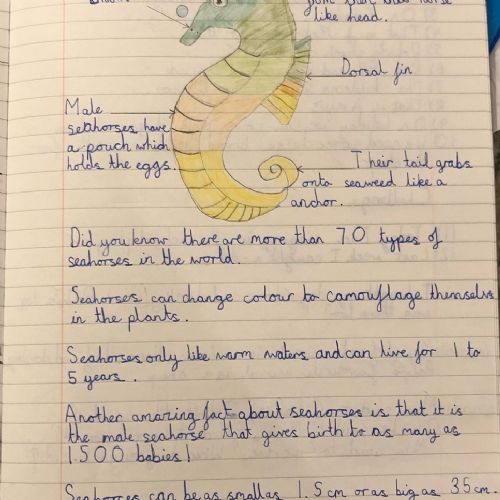 from their horse
like head.
Dorsal fin
Male
seahorses have
a pouch which
holds the eggs.
Their tail grabs
onto seaweed like a
anchor.
Did you know there are more than 70 types of
seahorses in the world.
Seahorses can change colour to camouflage themselves
in the plants.
Seahorses only like warm waters and can live for 1 to
5 years.
Another amazing fact about seahorses is that it is
the male seahorse that gives birth to as many as
1500 babies!
Seahorses can be as small as 1.5cm or as big as 35cm.